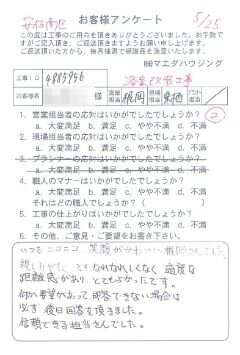 安佐南区 お客様アンケート 5/25
この度は工事のご用命を頂きありがとうございました。お手数で
すがご記入頂き、ご返送頂きますようお願い申し上げます。
ご返送頂いた方から、毎月抽選で感謝品を進呈いたします。
㈱マエダハウジング
工事ID 4885956 浴室改装工事
お客様名 様 営業担当 工事担当
1. 営業担当者の応対はいかがでしたでしょうか?
a. 大変満足 b. 満足 c. やや不満 d. 不満
2. 現場担当者の応対はいかがでしたでしょうか?
a. 大変満足 b. 満足 c. やや不満 d. 不満
3. プランナーの応対はいかがでしたでしょうか?
a. 大変満足 b. 満足 c. やや不満 d. 不満
4. 職人のマナーはいかがでしたでしょうか?
a. 大変満足 b. 満足 c. やや不満 d. 不満
それはどの職人でしょうか?(
5. 工事の仕上がりはいかがでしたでしょうか?
a. 大変満足 b. 満足 c. やや不満 d. 不満
6. その他、ご意見・ご要望をお書き下さい。
いつもニコニコ 笑顔がかわいい
親しみやすく とても なれなれしくなく 適度な
距離感があり とてもよかったです。
何か要望があって 即答できない場合は
必ず 後日回答を頂きました。
信頼できる担当さんでした。